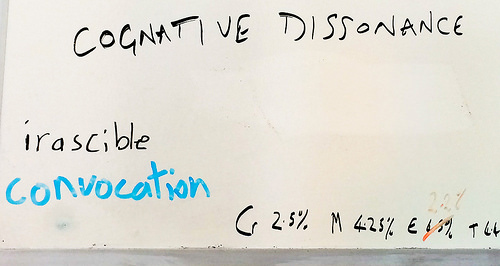 COGNATIVE DISSONANCE
irascible
convocation
2.2%
G 2.5% M 4.25% E 6.5% T